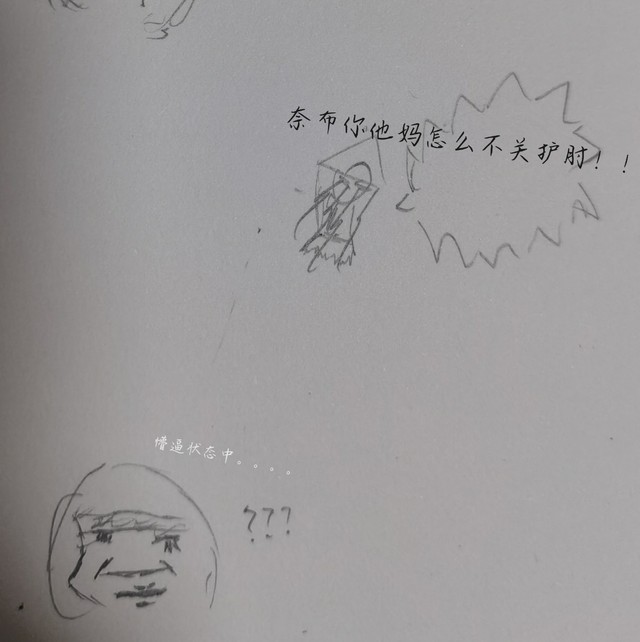 奈布你他妈怎么不关护肘！！
懵逼状态中。。。。
???